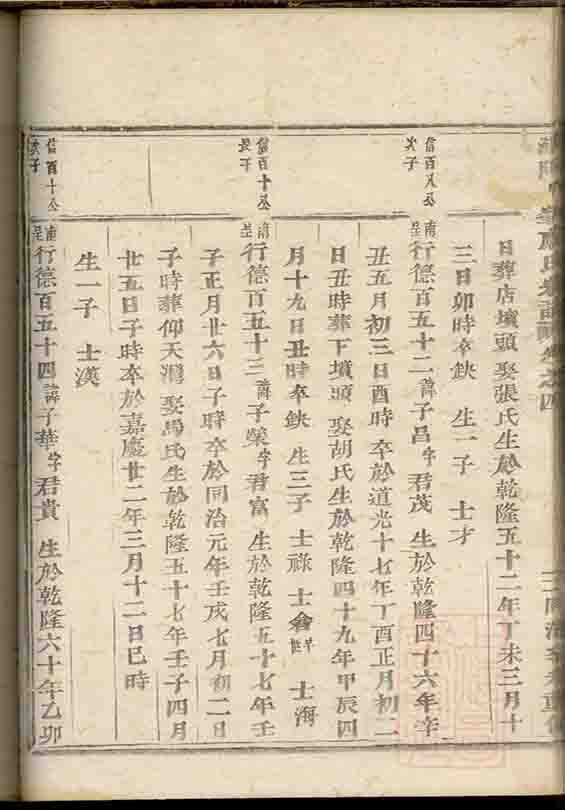 氏
卷之四
日葬店墳頭 娶張氏生於乾隆五十二年丁未三月十
三日卯時卒缺 生一子 士才
信百八公
次子
行德百五十二諱子昌字君茂 生於乾隆四十六年辛
丑五月初三日酉時 卒於道光十七年丁酉正月初二
日丑時葬下墳頭 娶胡氏生於乾隆四十九年甲辰四
月十九日丑時卒缺 生三子 士祿 士 士海
信百十公
長子
行德百五十三諱子榮字君富 生於乾隆五十七年壬
子正月廿六日子時卒於同治元年壬戌七月初二日
子時葬仰天灣 娶馬氏生於乾隆五十七年壬子四月
廿五日子時卒於嘉慶廿二年三月十二日巳時
生一子 士漢
信百十公
次子
行德百五十四諱子華字君貴 生於乾隆六十年乙卯